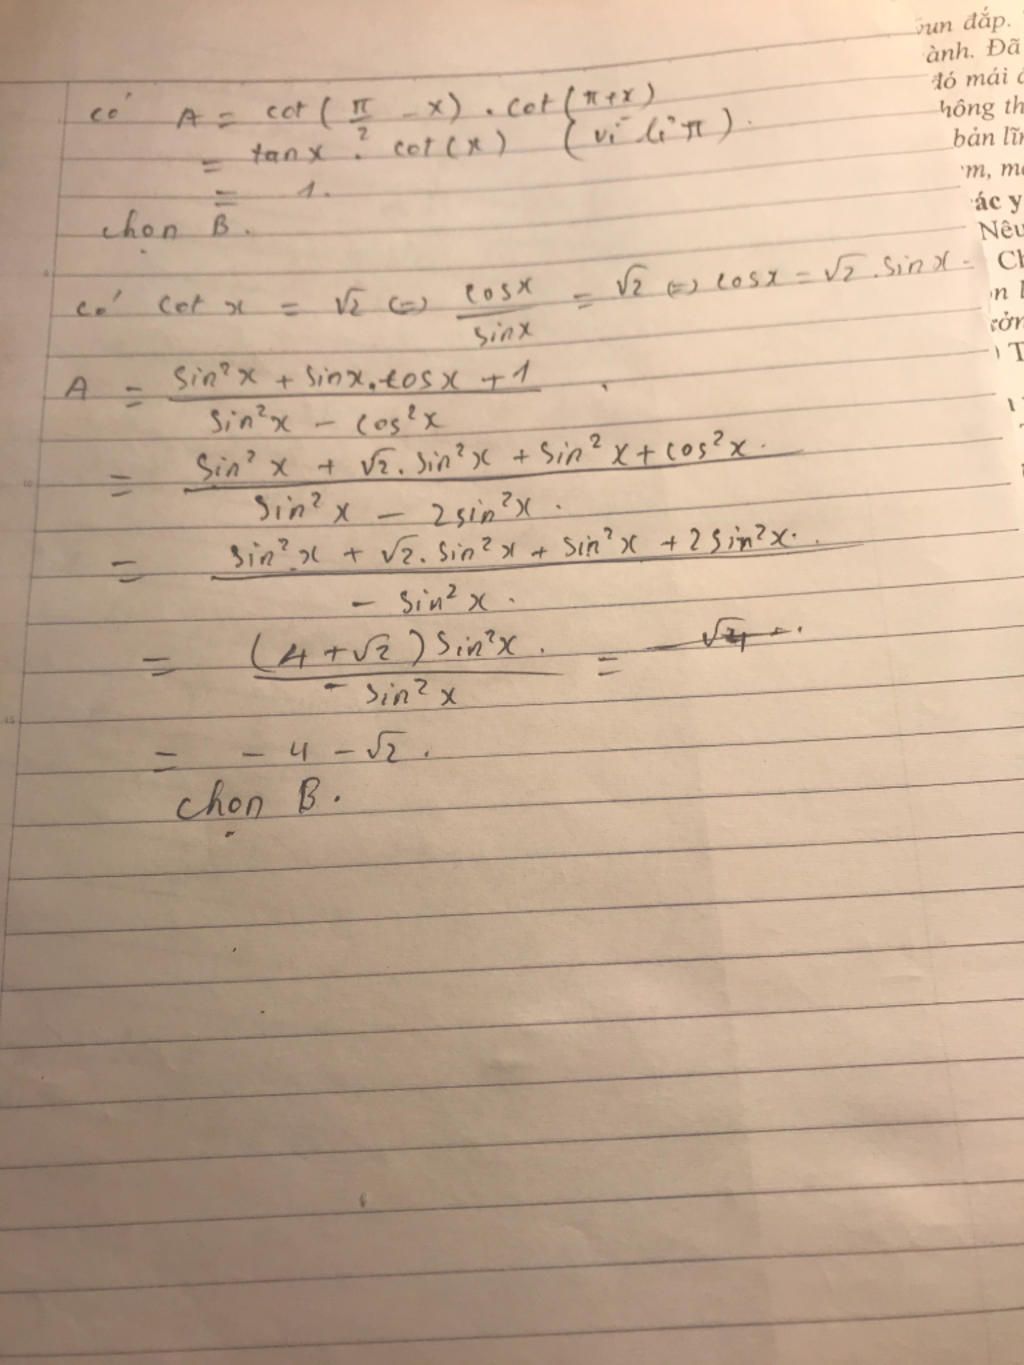 có A = cot(π/2 - x) . cot(π+x)
= tanx . cot(x) (vì π).
= 1.
chọn B.
có cot x = √2 <=> cosx/sinx = √2 <=> cosx = √2 . sinx
A = (sin²x + sinx.cosx + 1)/(sin²x - cos²x)
= (sin²x + √2. sin²x + sin²x + cos²x.)/(sin²x - 2sin²x.)
= (sin²x + √2. sin²x + sin²x + 2sin²x.)/(- sin²x.)
= ((4+√2) sin²x.)/(- sin²x) =
= - 4 - √2.
chọn B.
đắp.
ành. Đã
đó mái
hông th
bản lĩn
m, m
ác y
Nêu